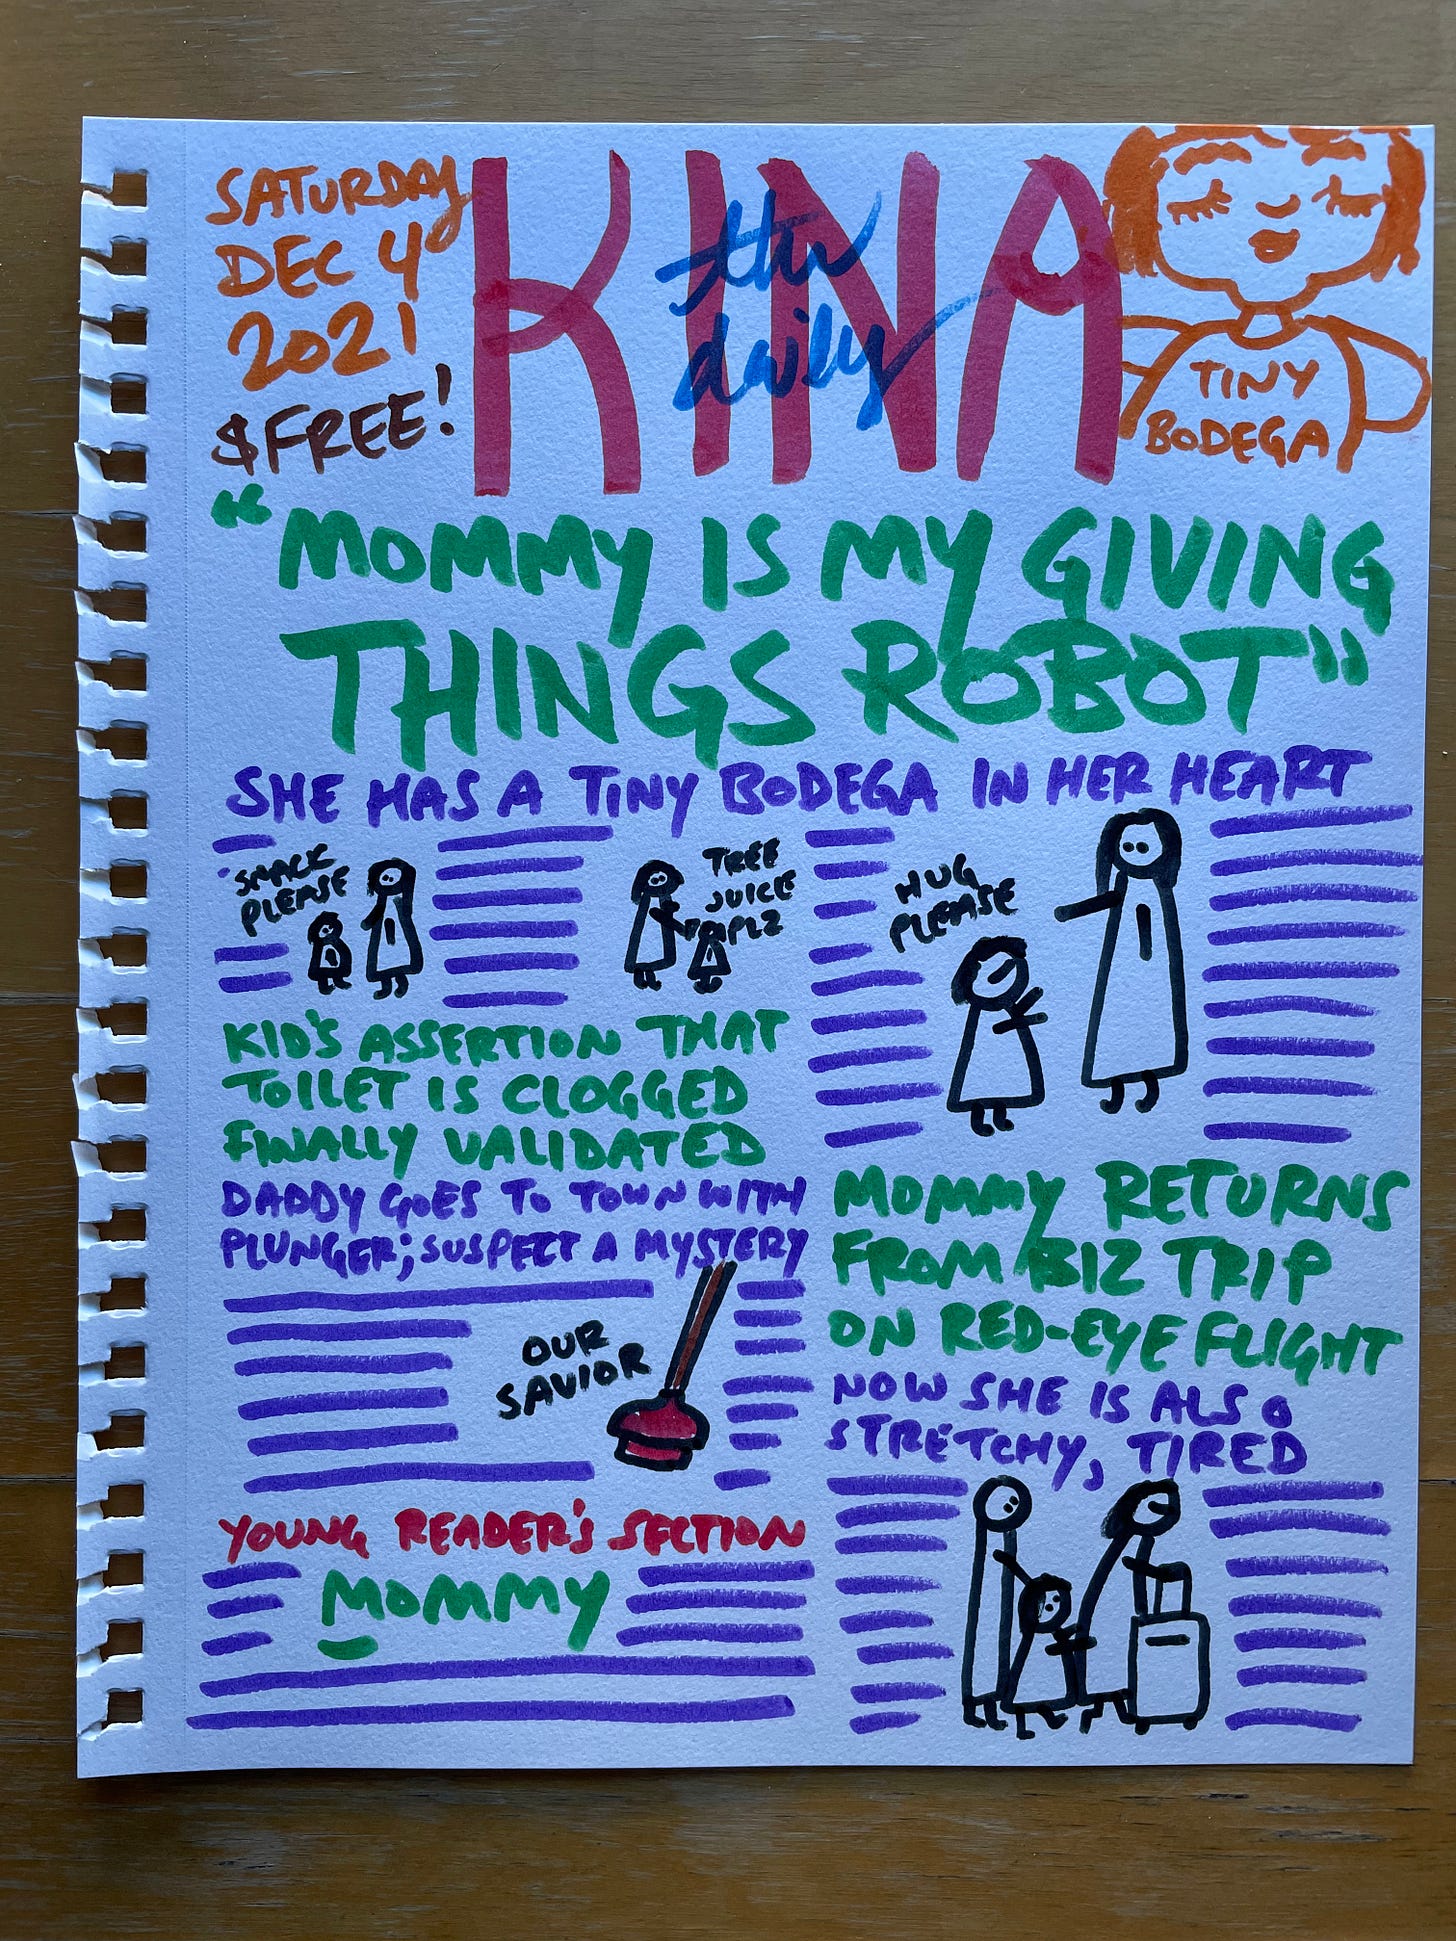 SATURDAY
DEC 4
2021
$FREE!
the
daily
KINA
TINY
BODEGA
"MOMMY IS MY GIVING
THINGS ROBOT"
SHE HAS A TINY BODEGA IN HER HEART
SNACK
PLEASE
TREE
JUICE
PLZ
HUG
PLEASE
KID'S ASSERTION THAT
TOILET IS CLOGGED
FINALLY VALIDATED
DADDY GOES TO TOWN WITH
PLUNGER; SUSPECT A MYSTERY
OUR
SAVIOR
YOUNG READER'S SECTION
MOMMY
MOMMY RETURNS
FROM BIZ TRIP
ON RED-EYE FLIGHT
NOW SHE IS ALSO
STRETCHY, TIRED